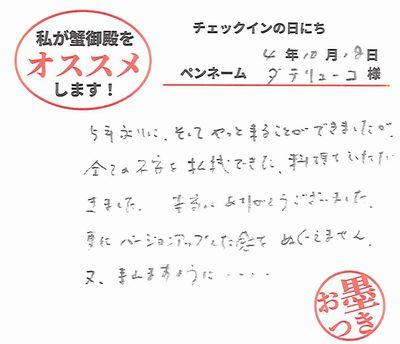 私が蟹御殿を
オススメ
します!
チェックインの日にち
4年10月18日
ペンネーム ダテリューコ様
5年ぶりに、そして やっと来ることができましたが、
全ての不安を払拭できた、料理をいただ
きました。本当に ありがとうございました。
更に バージョンアップした感を ぬぐえません。
又、来れますように・・・・
お墨つき